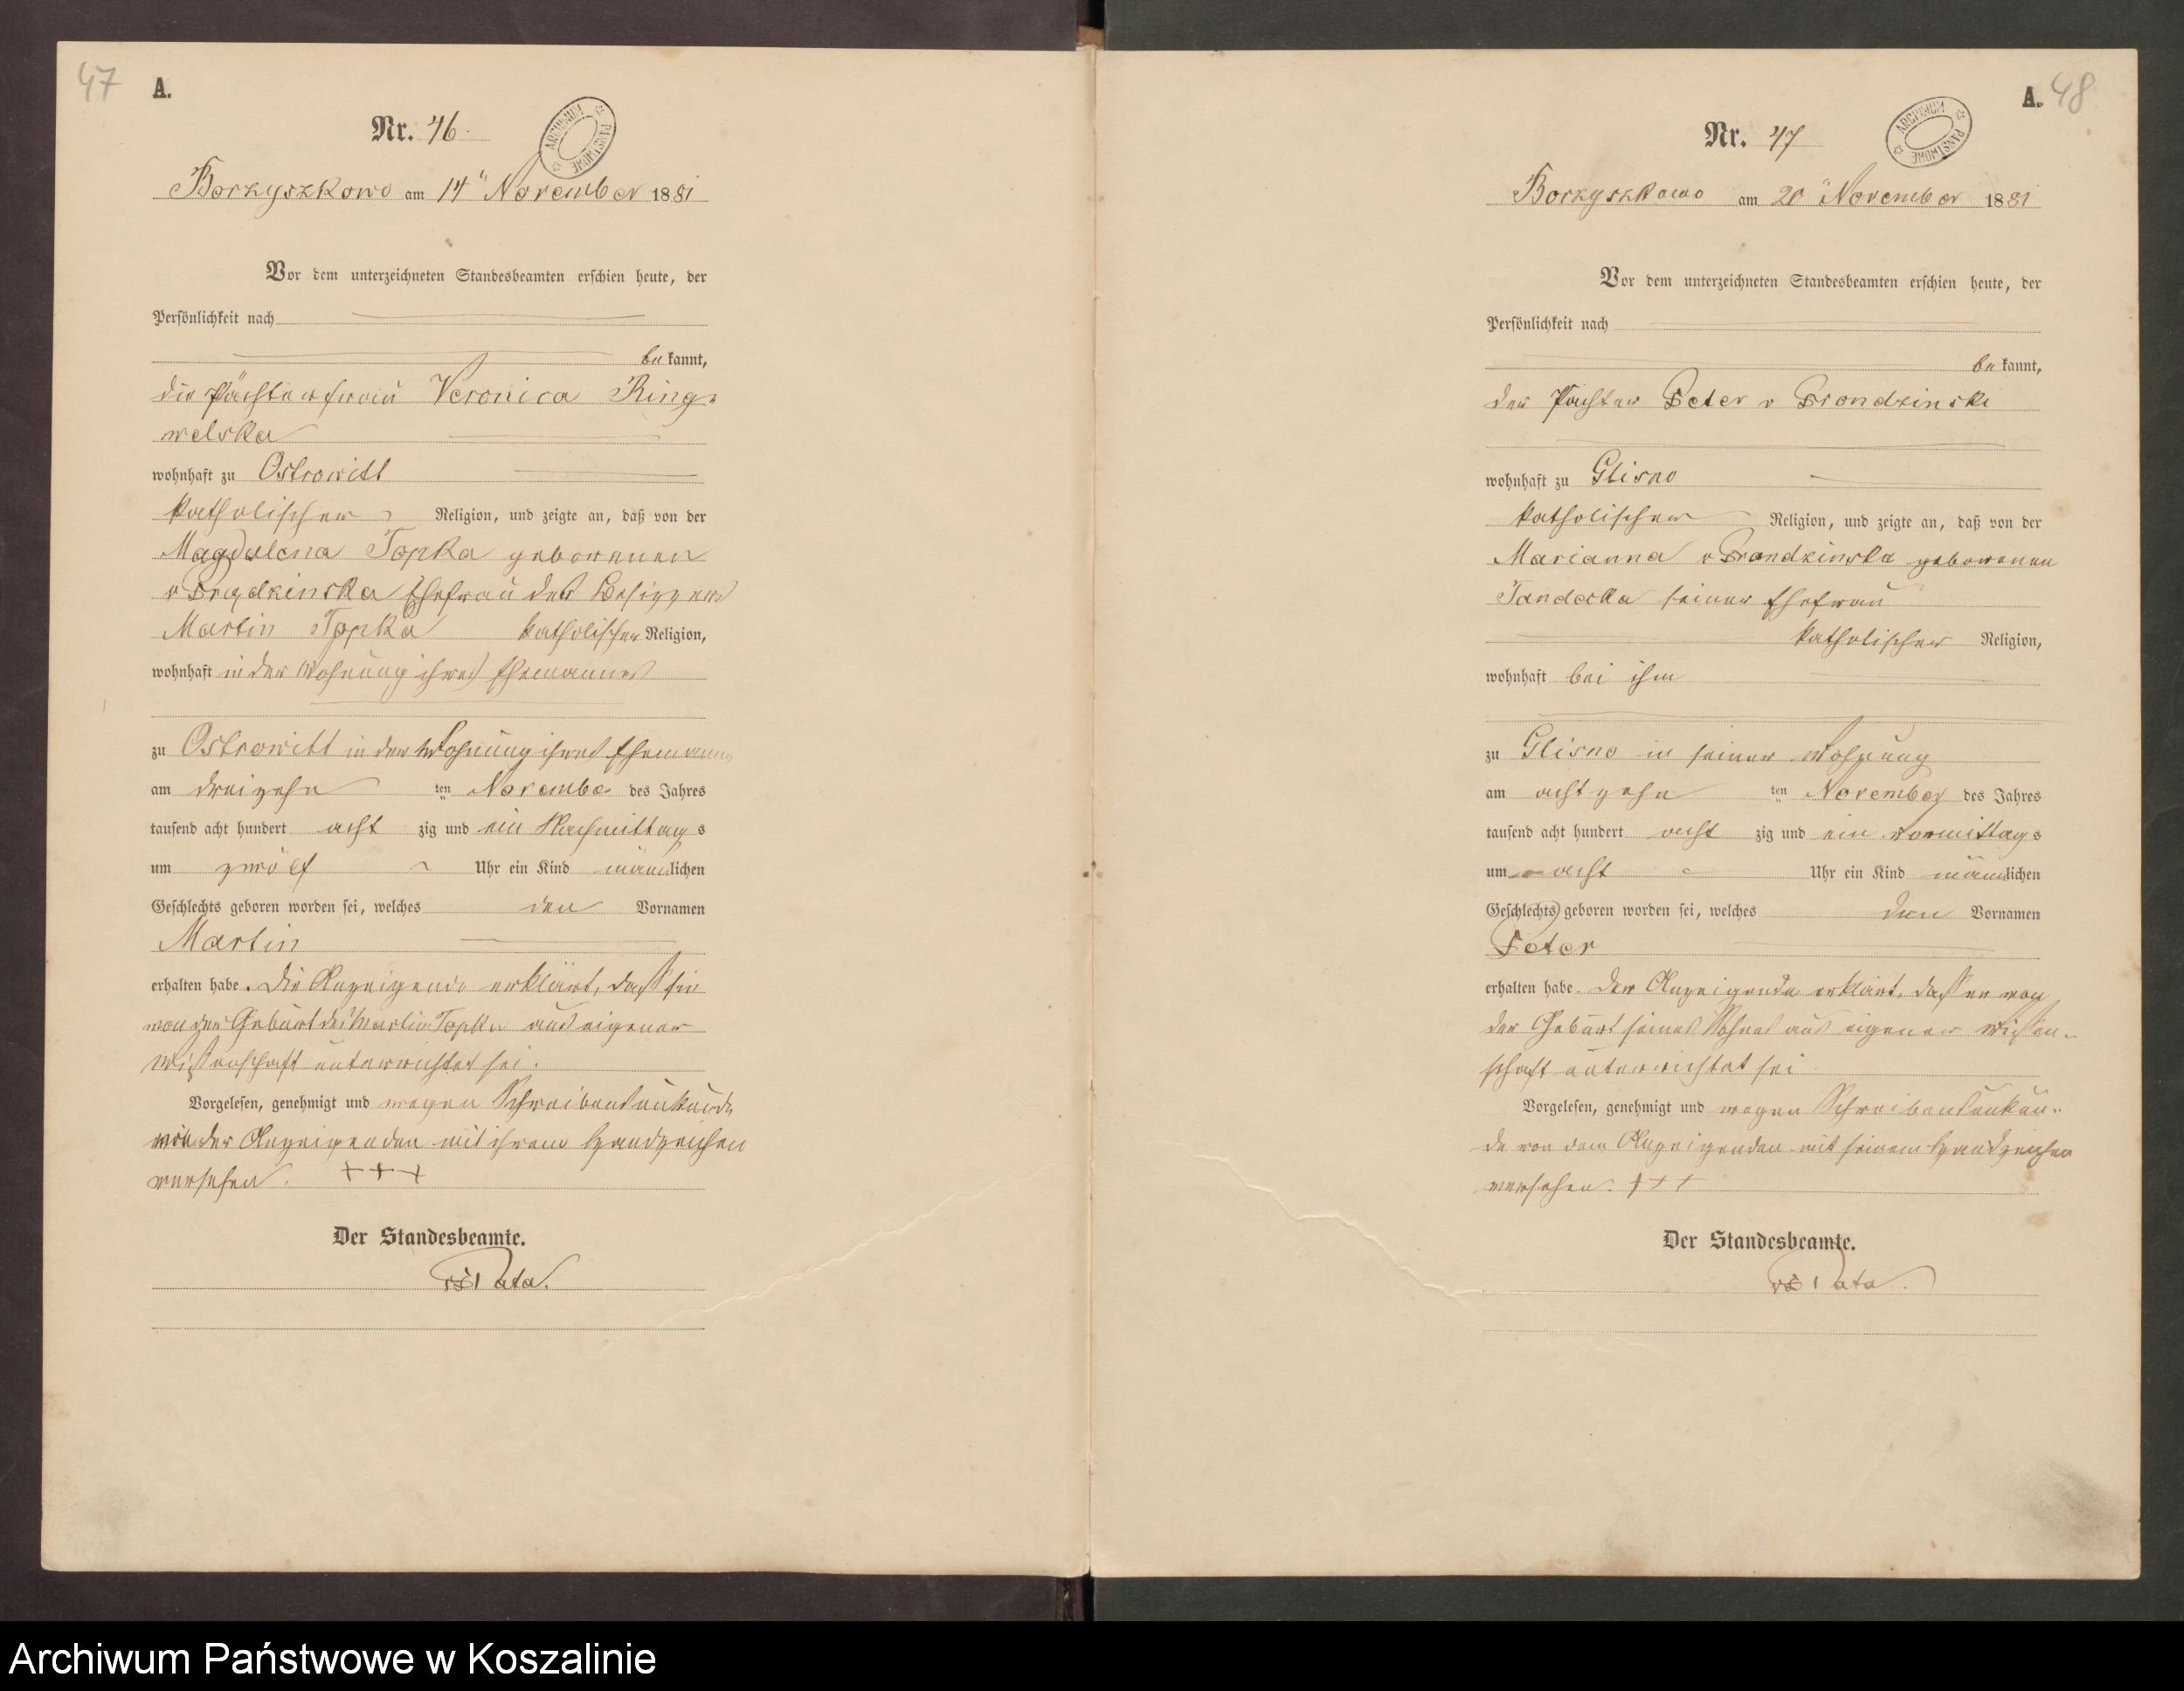 47
A.
Nr. 46.
ARCHIWUM PAŃSTWOWE
Borzyszkowo am 14" November 1881
Vor dem unterzeichneten Standesbeamten erschien heute, der
Persönlichkeit nach
be kannt,
die Pächterfrau Veronica Ring-
welska
wohnhaft zu Ostrowitt
katholischer Religion, und zeigte an, daß von der
Magdalena Topka geborenen
Ehefrau des Besitzers
Martin Topka katholischer Religion,
wohnhaft in der Wohnung ihres Ehemannes
zu Ostrowitt in der Wohnung ihres Ehemannes
am dreizehn ten November des Jahres
tausend acht hundert acht zig und ein Nachmittag s
um zwölf Uhr ein Kind männlichen
Geschlechts geboren worden sei, welches den Vornamen
Martin
erhalten habe. Die Anzeigende erklärt, daß sie
von der Geburt des Martin Topka aus eigener
Wissenschaft unterrichtet sei.
Vorgelesen, genehmigt und wegen Schreibensunkunde
von der Anzeigenden mit ihrem Handzeichen
versehen. +++
Der Standesbeamte.
Pata.
A. 48
Nr. 47
ARCHIWUM PAŃSTWOWE
Borzyszkowo am 20" November 1881
Vor dem unterzeichneten Standesbeamten erschien heute, der
Persönlichkeit nach
be kannt,
der Pächter Peter v Prondzinski
wohnhaft zu Glisno
katholischer Religion, und zeigte an, daß von der
Marianna v Prondzinska geborenen
seiner Ehefrau
katholischer Religion,
wohnhaft bei ihm
zu Glisno in seiner Wohnung
am achtzehn ten November des Jahres
tausend acht hundert acht zig und ein Vormittag s
um acht Uhr ein Kind männlichen
Geschlechts geboren worden sei, welches den Vornamen
Peter
erhalten habe. Der Anzeigende erklärt, daß er von
der Geburt seines Sohnes aus eigener Wissen-
schaft unterrichtet sei.
Vorgelesen, genehmigt und wegen Schreibensunkun-
de von dem Anzeigenden mit seinem Handzeichen
versehen. +++
Der Standesbeamte.
Pata.
Archiwum Państwowe w Koszalinie